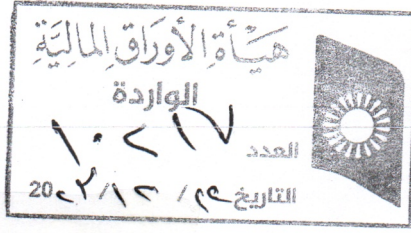 هيأة الأوراق المالية
الواردة
العدد ١٠٢١٧
التاريخ